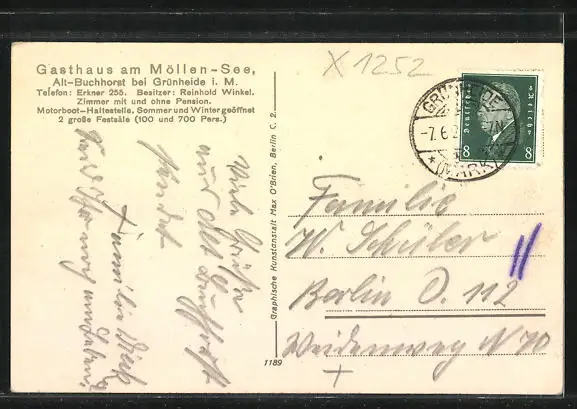 Gasthaus am Möllen-See,
Alt-Buchhorst bei Grünheide i. M.
Telefon: Erkner 255. Besitzer: Reinhold Winkel.
Zimmer mit und ohne Pension.
Motorboot-Haltestelle. Sommer und Winter geöffnet
2 große Festsäle (100 und 700 Pers.)
X 1252
GRÜNHEIDE
-7.6.2
* (MARK)
Deutsches Reich
8 8
Viele Grüße
auf der
sendet
Familie
Graphische Kunstanstalt Max O'Brien, Berlin C. 2.
1189
Familie
W. Schüler
Berlin O. 112
Weidenweg N 70